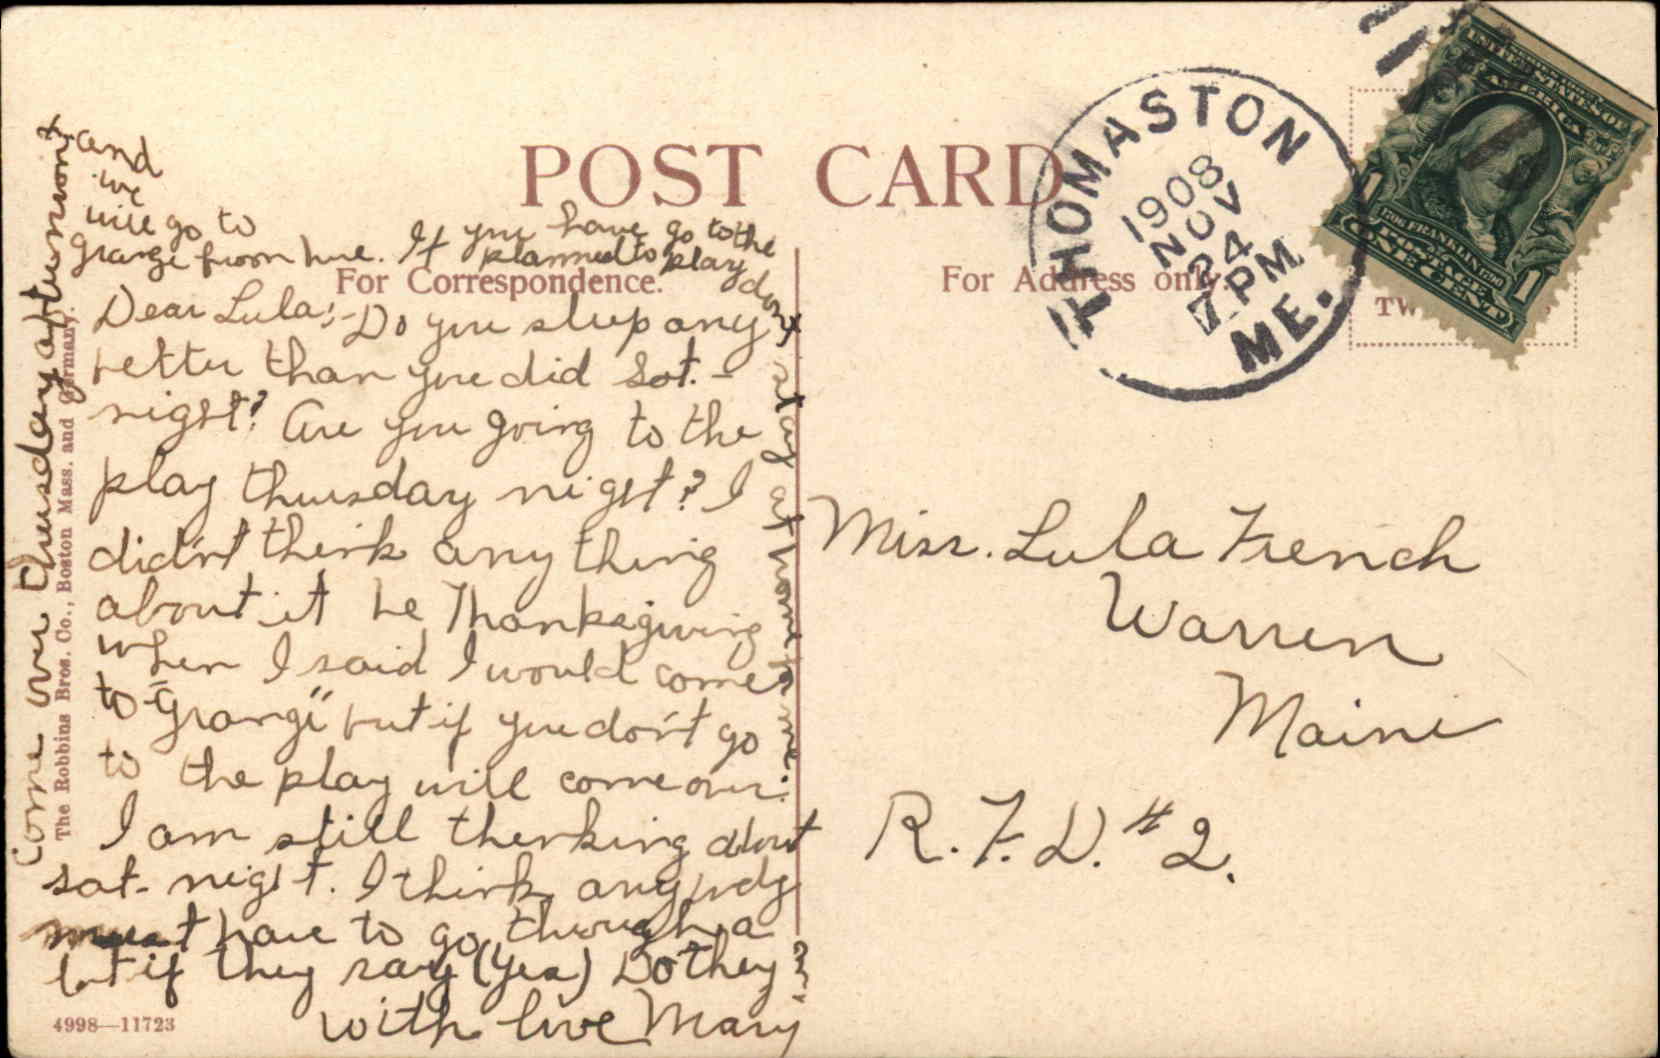 POST CARD
For Correspondence.
For Address only.
THOMASTON
1908
NOV
24
7 PM
ME.
UNITED STATES OF
AMERICA
1706 FRANKLIN 1790
POSTAGE
1 ONE CENT 1
TW
Dear Lula:- Do you sleep any
better than you did Sat. -
night? Are you going to the
play thursday night? I
didn't think any thing
about it be Thanksgiving
when I said I would come
to "Grange" but if you don't go
to the play will come over.
I am still thinking about
sat- night. I think anybody
must have to go through a
lot if they say (yes) Do they
with love Mary
come over thursday afternoon
and
we
will go to
grange from here. If you have
planned to go to the
play don't stay at home for me.
The Robbins Bros. Co., Boston Mass. and Germany.
4998—11723
Miss. Lula French
Warren
Maine
R. F. D. # 2.